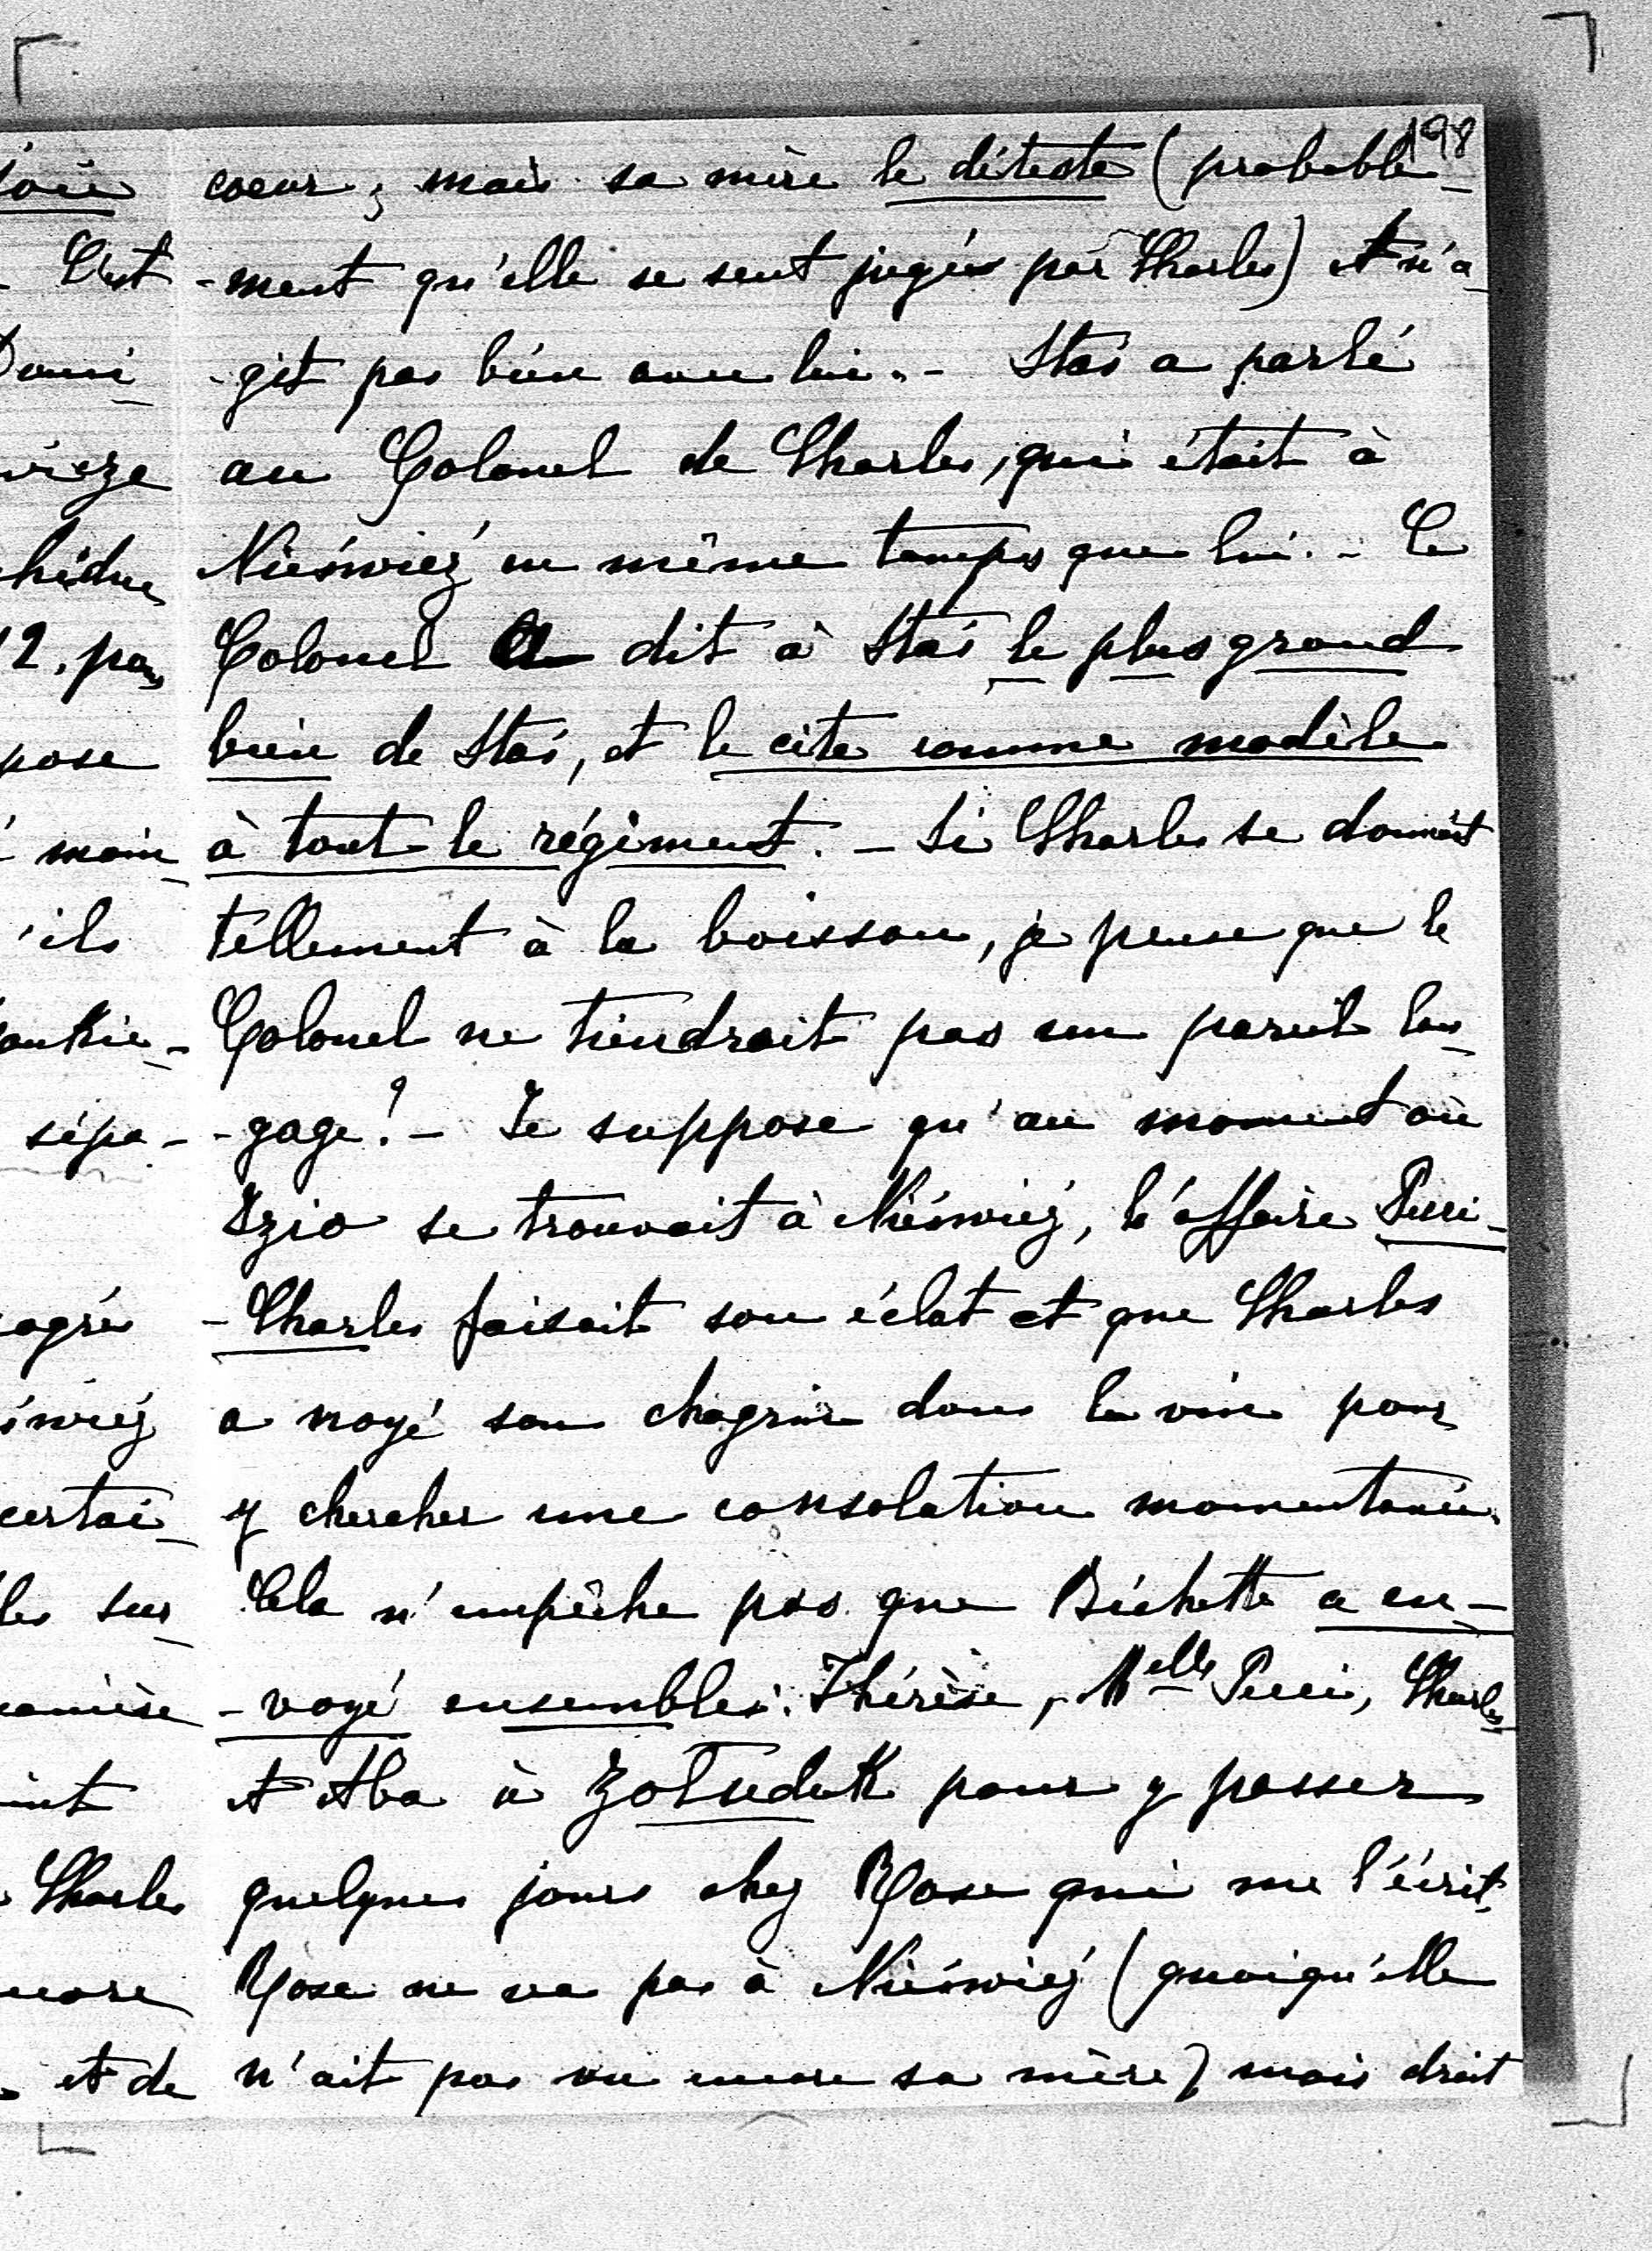 198
coeur ; mais sa mère le déteste (probable-
-ment qu'elle se sent jugée par Charles) et n'a-
-git pas bien avec lui. - Staś a parlé
au Colonel de Charles, qui était à
Nieśwież en même temps que lui. - Le
Colonel a dit à Staś le plus grand
bien de Staś, et le cite comme modèle
à tout le régiment. - Si Charles se donnait
tellement à la boisson, je pense que le
Colonel ne tiendrait pas un pareil lan-
-gage? - Je suppose qu'au moment où
Izio se trouvait à Nieśwież, l'affaire Pucci-
-Charles faisait son éclat et que Charles
a noyé son chagrin dans le vin pour
y chercher une consolation momentanée.
Cela n'empêche pas que Bichette a en-
-voyé ensembles: Thérèse, Melle Pucci, Charles
et Aba à Żołudek pour y passer
quelques jours chez Rose qui me l'écrit.
Rose ne va pas à Nieśwież (quoiqu'elle
n'ait pas vu encore sa mère) mais droit